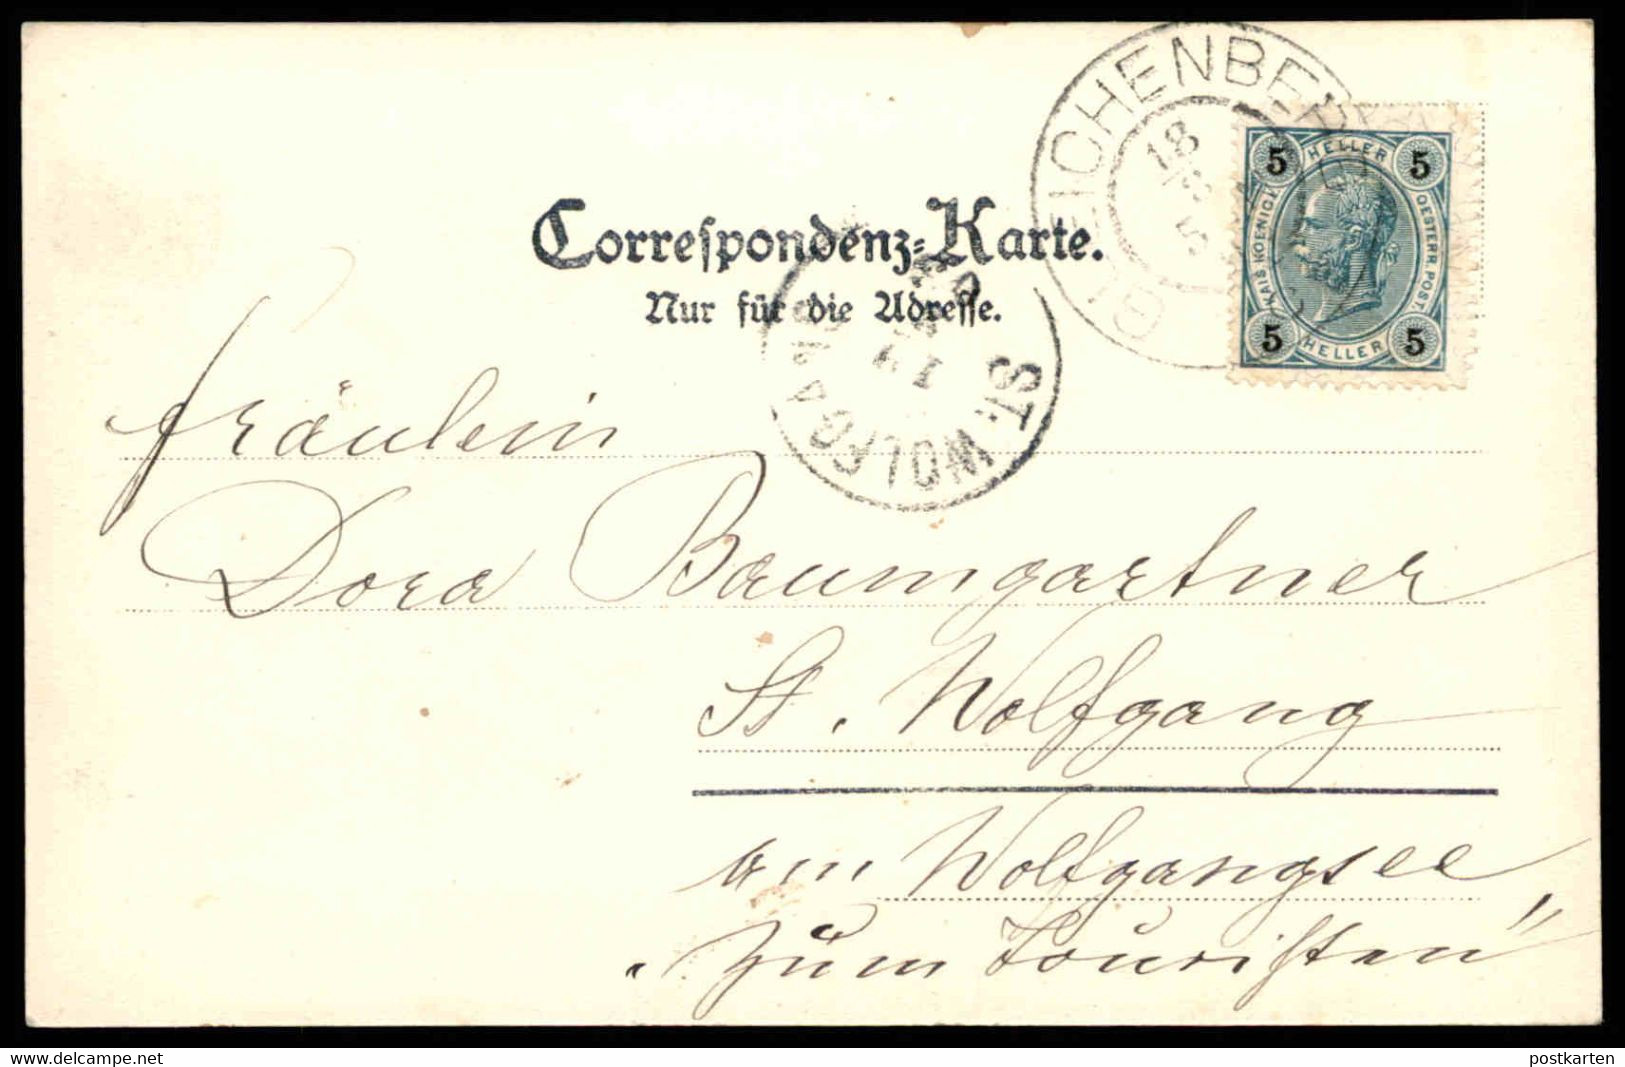 Correspondenz-Karte.
Nur für die Adresse.
5 HELLER 5
KAIS. KOENIGL. OESTERR. POST.
5 HELLER 5
18
5
ST. WOLFGANG
Fräulein
Dora Baumgartner
St. Wolfgang
am Wolfgangsee
„Zum Touristen"
www.delcampe.net
postkarten